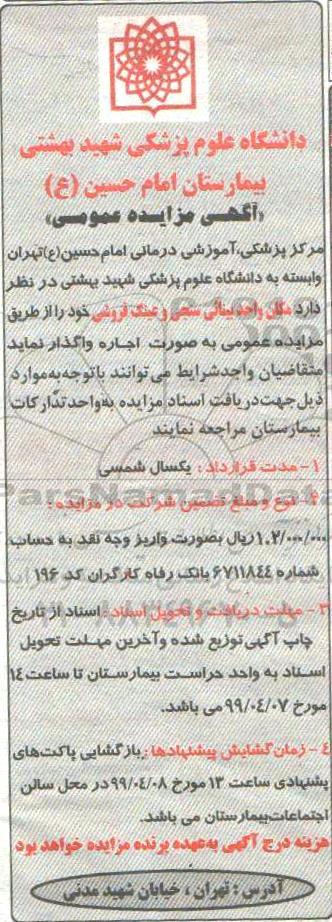 دانشگاه علوم پزشکی شهید بهشتی
بیمارستان امام حسین (ع)
«آگهی مزایده عمومی»
مرکز پزشکی، آموزشی درمانی امام حسین (ع) تهران
وابسته به دانشگاه علوم پزشکی شهید بهشتی در نظر
دارد مکان واحد بینائی سنجی و عینک فروشی خود را از طریق
مزایده عمومی به صورت اجاره واگذار نماید
متقاضیان واجد شرایط می توانند با توجه به موارد
ذیل جهت دریافت اسناد مزایده به واحد تدارکات
بیمارستان مراجعه نمایند
۱- مدت قرارداد : یکسال شمسی
۲- نوع و مبلغ تضمین شرکت در مزایده :
ریال بصورت واریز وجه نقد به حساب
شماره ۶۷۱۱۸۴۴ بانک رفاه کارگران کد ۱۹۶
۳- مهلت دریافت و تحویل اسناد : اسناد از تاریخ
چاپ آگهی توزیع شده و آخرین مهلت تحویل
اسناد به واحد حراست بیمارستان تا ساعت ۱۴
مورخ ۹۹/۰۴/۰۷ می باشد.
۴- زمان گشایش پیشنهادها : بازگشایی پاکت های
پشنهادی ساعت ۱۳ مورخ ۹۹/۰۴/۰۸ در محل سالن
اجتماعات بیمارستان می باشد.
هزینه درج آگهی به عهده برنده مزایده خواهد بود
آدرس : تهران ، خیابان شهید مدنی